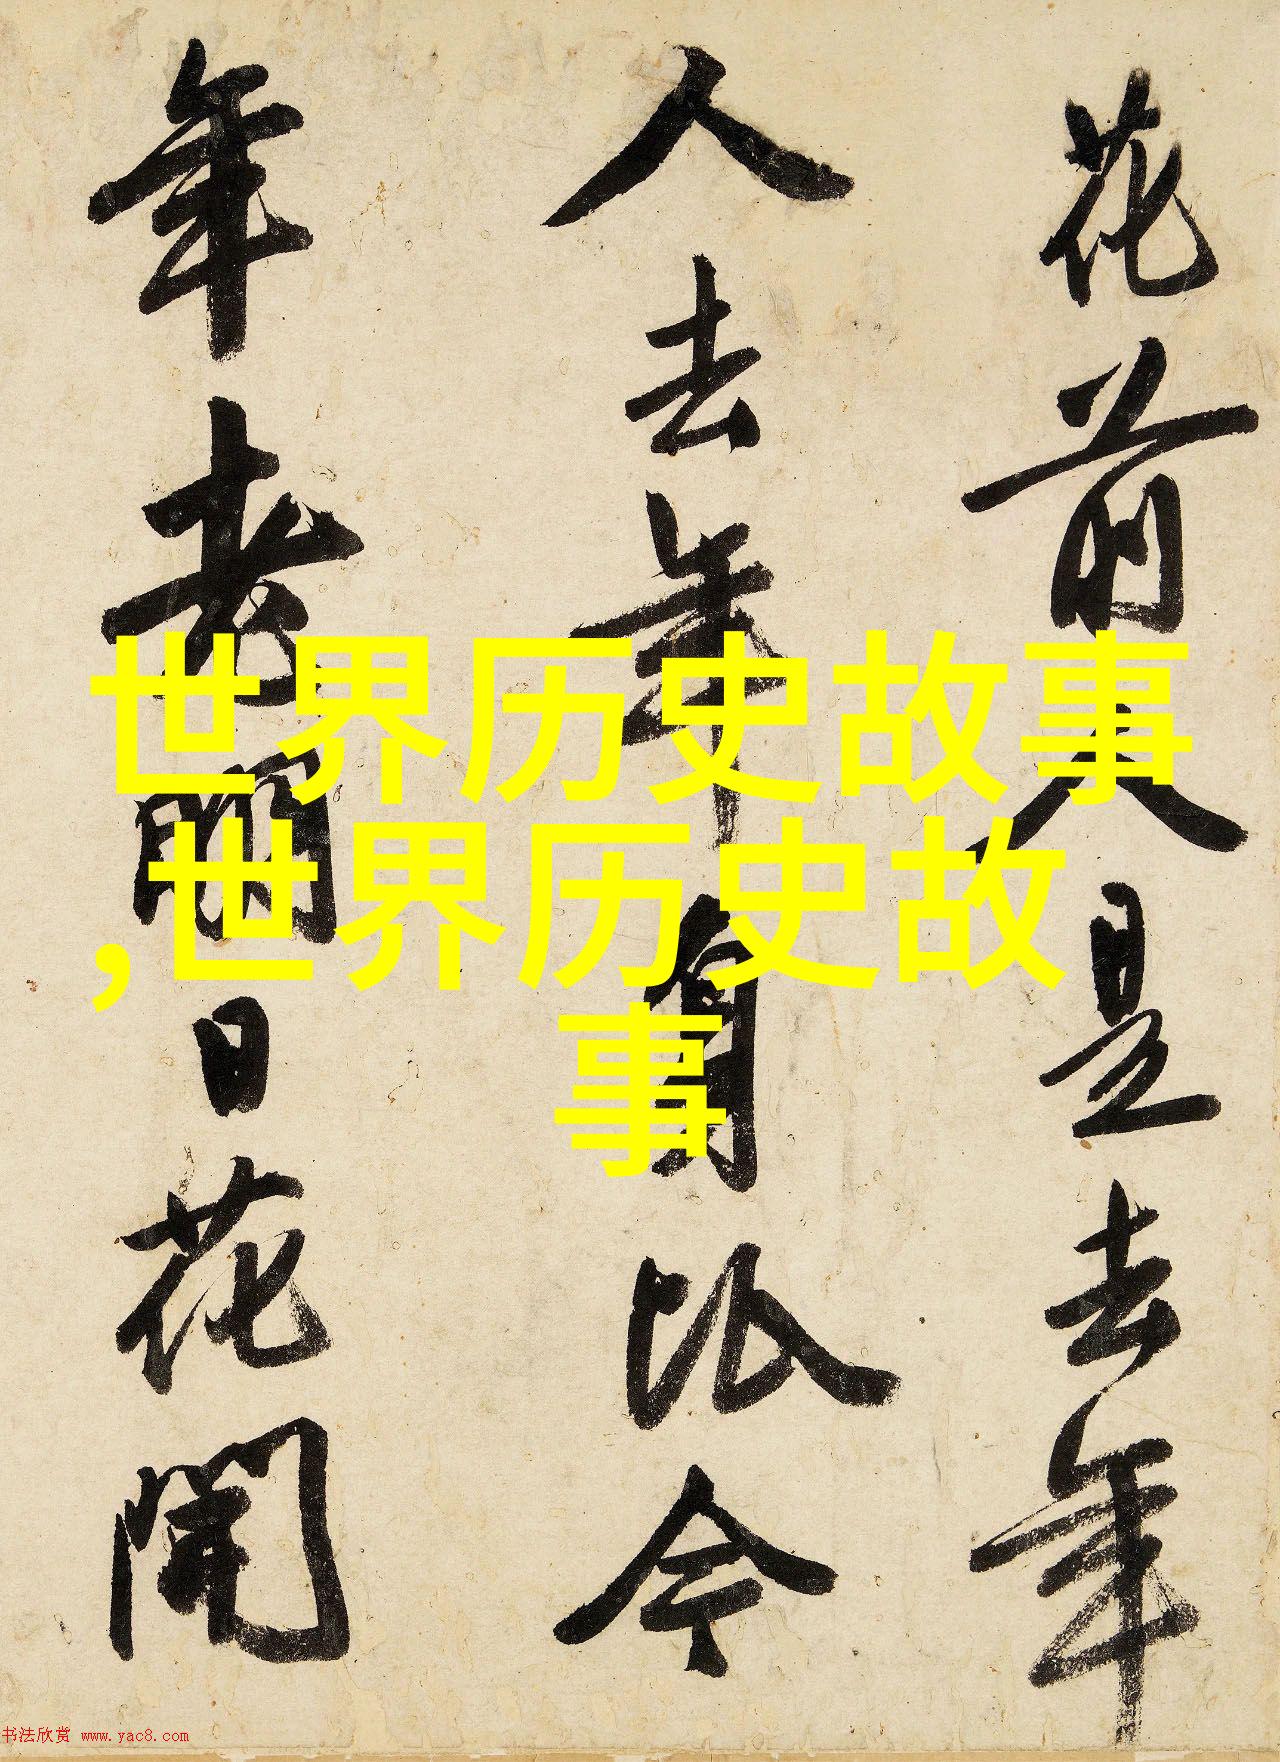 花前人是去年
人去年有比今
年老明日花開
世界历史故事
,世界历史故
事
书法欣赏 www.yac8.com